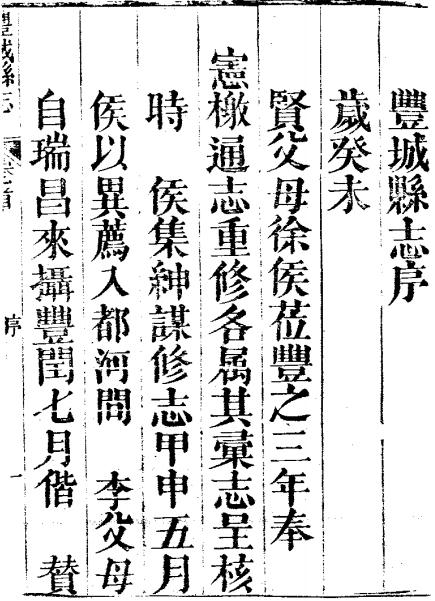 豐城縣志序
歲癸未
賢父母徐侯莅豐之三年奉
憲檄通志重修各属其彙志呈核
時　侯集紳謀修志甲申五月
侯以異薦入都河間　李父母
自瑞昌來攝豐閏七月偕　贊
豐城縣志
卷首
序
一